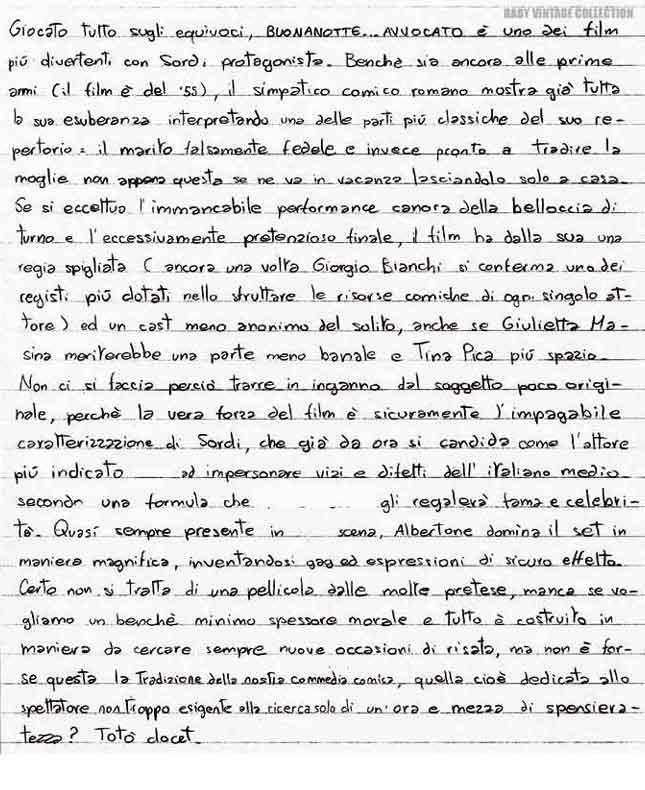 BABY VINTAGE COLLECTION
Giocato tutto sugli equivoci, BUONANOTTE... AVVOCATO è uno dei film
più divertenti con Sordi protagonista. Benchè sia ancora alle prime
armi (il film è del '55), il simpatico comico romano mostra già tutta
la sua esuberanza interpretando una delle parti più classiche del suo re-
pertorio: il marito falsamente fedele e invece pronto a tradire la
moglie non appena questa se ne va in vacanza lasciandolo solo a casa.
Se si eccettua l'immancabile performance canora della belloccia di
turno e l'eccessivamente pretenzioso finale, il film ha dalla sua una
regia spigliata (ancora una volta Giorgio Bianchi si conferma uno dei
registi più dotati nello sfruttare le risorse comiche di ogni singolo at-
tore) ed un cast meno anonimo del solito, anche se Giulietta Ma-
sina meriterebbe una parte meno banale e Tina Pica più spazio.
Non ci si faccia perciò trarre in inganno dal soggetto poco origi-
nale, perchè la vera forza del film è sicuramente l'impagabile
caratterizzazione di Sordi, che già da ora si candida come l'attore
più indicato ad impersonare vizi e difetti dell'italiano medio
secondo una formula che gli regalerà fama e celebri-
tà. Quasi sempre presente in scena, Albertone domina il set in
maniera magnifica, inventandosi gag ed espressioni di sicuro effetto.
Certo non si tratta di una pellicola dalle molte pretese, manca se vo-
gliamo un benchè minimo spessore morale e tutto è costruito in
maniera da cercare sempre nuove occasioni di risata, ma non è for-
se questa la Tradizione della nostra commedia comica, quella cioè dedicata allo
spettatore non troppo esigente alla ricerca solo di un'ora e mezza di spensiera-
tezza? Totò docet.